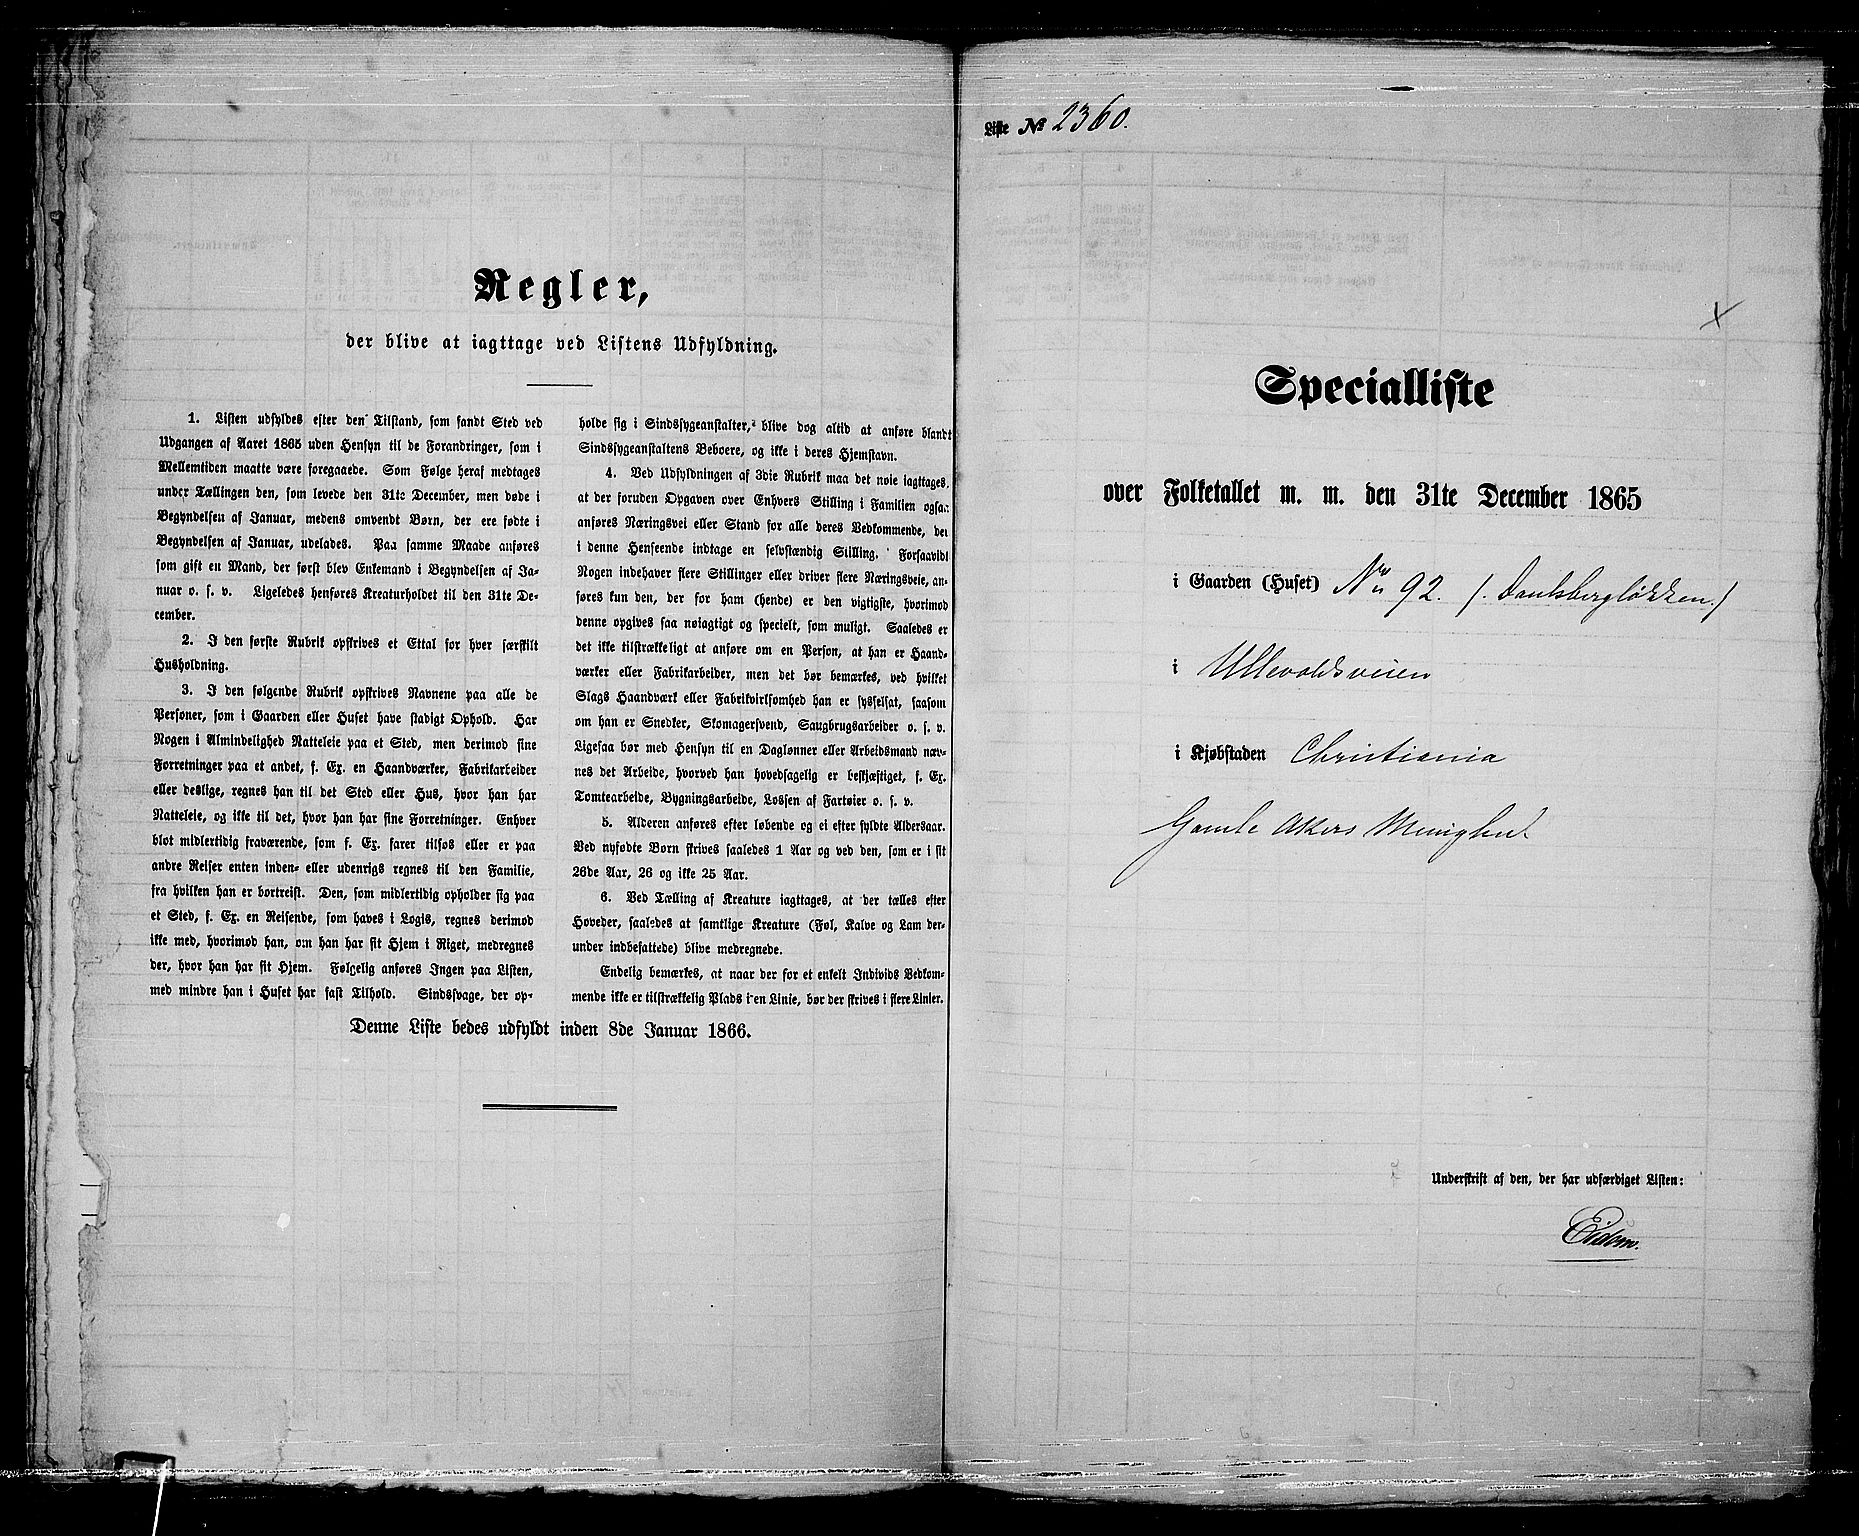 Regler,
der blive at iagttage ved Listens Udfyldning.
1. Listen udfyldes efter den Tilstand, som fandt Sted ved
Udgangen af Aaret 1865 uden Hensyn til de Forandringer, som i
Mellemtiden maatte være foregaaede. Som Følge heraf medtages
under Tællingen den, som levede den 31te December, men døde i
Begyndelsen af Januar, medens omvendt Børn, der ere fødte i
Begyndelsen af Januar, udelades. Paa samme Maade anføres
som gift en Mand, der først blev Enkemand i Begyndelsen af Ja-
nuar o. s. v. Ligeledes henføres Kreaturholdet til den 31te De-
cember.
2. I den første Rubrik opskrives et Ettal for hver særskilt
Husholdning.
3. I den følgende Rubrik opskrives Navnene paa alle de
Personer, som i Gaarden eller Huset have stadigt Ophold. Har
Nogen i Almindelighed Natteleie paa et Sted, men derimod sine
Forretninger paa et andet, f. Ex. en Haandværker, Fabrikarbeider
eller deslige, regnes han til det Sted eller Hus, hvor han har
Natteleie, og ikke til det, hvor han har sine Forretninger. Enhver
blot midlertidig fraværende, som f. Ex. farer tilsøs eller er paa
andre Reiser enten inden- eller udenrigs regnes til den Familie,
fra hvilken han er bortreist. Den, som midlertidig opholder sig paa
et Sted, f. Ex. en Reisende, som haves i Logis, regnes derimod
ikke med, hvorimod han, om han har sit Hjem i Riget, medregnes
der, hvor han har sit Hjem. Følgelig anføres Ingen paa Listen,
med mindre han i Huset har fast Tilhold. Sindssvage, der op-
holde sig i Sindssygeanstalter, blive dog altid at anføre blandt
Sindssygeanstaltens Beboere, og ikke i deres Hjemstavn.
4. Ved Udfyldningen af 3die Rubrik maa det nøie iagttages,
at der foruden Opgaven over Enhvers Stilling i Familien ogsaa
anføres Næringsvei eller Stand for alle deres Vedkommende, der
i denne Henseende indtage en selvstændig Stilling. Forsaavidt
Nogen indehaver flere Stillinger eller driver flere Næringsveie, an-
føres kun den, der for ham (hende) er den vigtigste, hvorimod
denne opgives saa nøiagtigt og specielt, som muligt. Saaledes er
det ikke tilstrækkeligt at anføre om en Person, at han er Haand-
værker eller Fabrikarbeider, men det bør bemærkes, ved hvilket
Slags Haandværk eller Fabrikvirksomhed han er sysselsat, saasom
om han er Snedker, Skomagersvend, Saugbrugsarbeider o. s. v.
Ligesaa bør med Hensyn til en Daglønner eller Arbeidsmand næv-
nes det Arbeide, hvorved han hovedsagelig er beskjæftiget, f. Ex.
Tomtearbeide, Bygningsarbeide, Lossen af Fartøier o. s. v.
5. Alderen anføres efter løbende og ei efter fyldte Aldersaar.
Ved nyfødte Børn skrives saaledes 1 Aar og ved den, som er i sit
26de Aar, 26 og ikke 25 Aar.
6. Ved Tælling af Kreature iagttages, at der tælles efter
Hoveder, saaledes at samtlige Kreature (Føl, Kalve og Lam der-
under indbefattede) blive medregnede.
Endelig bemærkes, at naar der for et enkelt Individs Vedkom-
mende ikke er tilstrækkelig Plads i en Linie, bør der skrives i flere Linier.
Denne Liste bedes udfyldt inden 8de Januar 1866.
Liste № 2360.
Specialliste
over Folketallet m. m. den 31te December 1865
i Gaarden (Huset) No 92. (Dauhsbergløkken.)
i Ullevoldsveien
i Kjøbstaden Christiania
Gamle Akers Menighed
Underskrift af den, der har udfærdiget Listen:
Eidom.